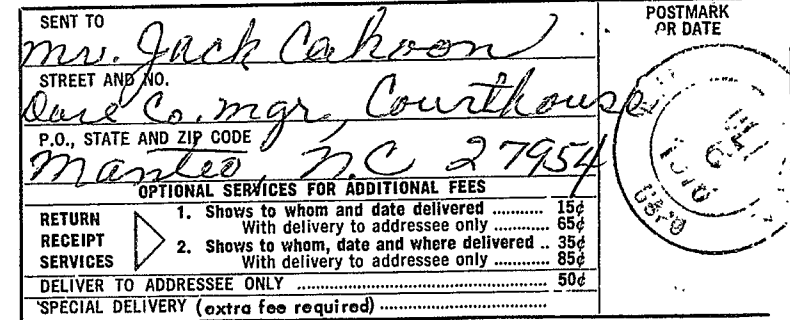 SENT TO
Mr. Jack Cahoon
STREET AND NO.
Dare Co. Mgr, Courthouse
P.O., STATE AND ZIP CODE
Manteo, N.C 27954
OPTIONAL SERVICES FOR ADDITIONAL FEES
RETURN RECEIPT SERVICES
1. Shows to whom and date delivered ........... 15¢
With delivery to addressee only ...... 65¢
2. Shows to whom, date and where delivered .. 35¢
With delivery to addressee only ...... 85¢
DELIVER TO ADDRESSEE ONLY .................................................. 50¢
SPECIAL DELIVERY (extra fee required) ..................................
POSTMARK
OR DATE
1976
USPO